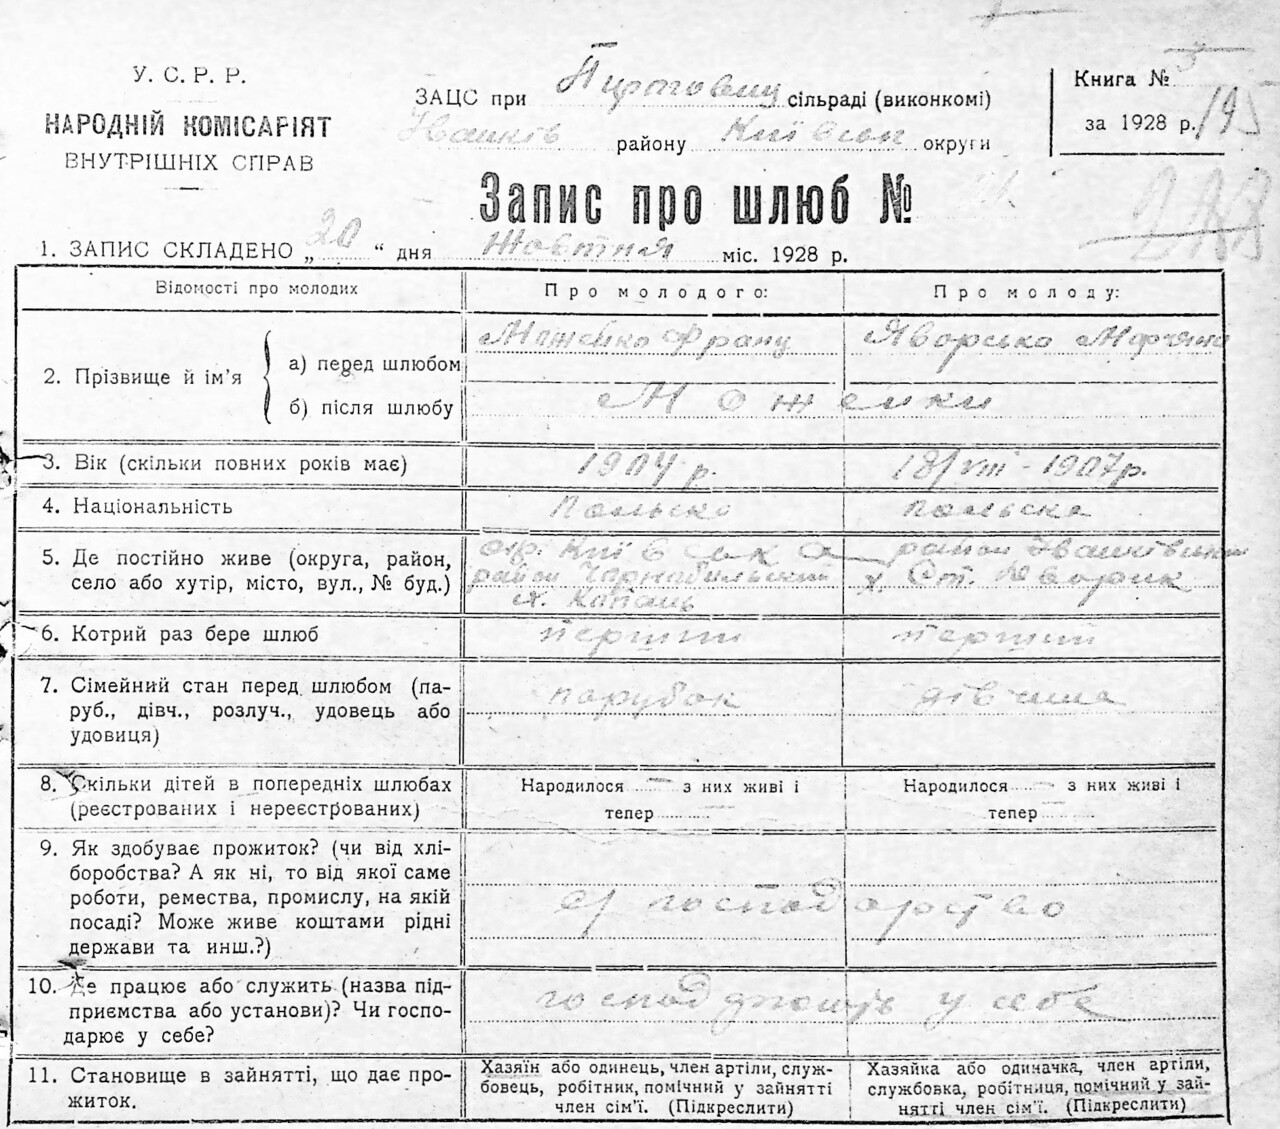 У. С. Р. Р.
НАРОДНІЙ КОМІСАРІЯТ
ВНУТРІШНІХ СПРАВ
ЗАЦС при сільраді (виконкомі)
району округи
Книга №
за 1928 р. 195
Запис про шлюб №
1. ЗАПИС СКЛАДЕНО „20“ дня Жовтня міс. 1928 р.
Відомості про молодих
Про молодого:
Про молоду:
2. Прізвище й ім’я
а) перед шлюбом
Можейко Франц
Яворська
б) після шлюбу
Можейки
3. Вік (скільки повних років має)
1904 р.
18/VIII - 1907 р.
4. Національність
польска
5. Де постійно живе (округа, район,
село або хутір, місто, вул., № буд.)
окр. Київська
район Чорнобильский
х. Копань
район
х. Ст. Дворик
6. Котрий раз бере шлюб
перший
перший
7. Сімейний стан перед шлюбом (па-
руб., дівч., розлуч., удовець або
удовиця)
парубок
дівчина
8. Скільки дітей в попередніх шлюбах
(реєстрованих і нереєстрованих)
Народилося — з них живі і
тепер
Народилося — з них живі і
тепер
9. Як здобуває прожиток? (чи від хлі-
боробства? А як ні, то від якої саме
роботи, ремества, промислу, на якій
посаді? Може живе коштами рідні
держави та инш.?)
с/господарство
10. Де працює або служить (назва під-
приємства або установи)? Чи госпо-
дарює у себе?
господ у себе
11. Становище в зайнятті, що дає про-
житок.
Хазяїн або одинець, член артіли, служ-
бовець, робітник, помічний у зайнятті
член сім’ї. (Підкреслити)
Хазяйка або одиначка, член артіли,
службовка, робітниця, помічний у зай-
нятті член сім’ї. (Підкреслити)